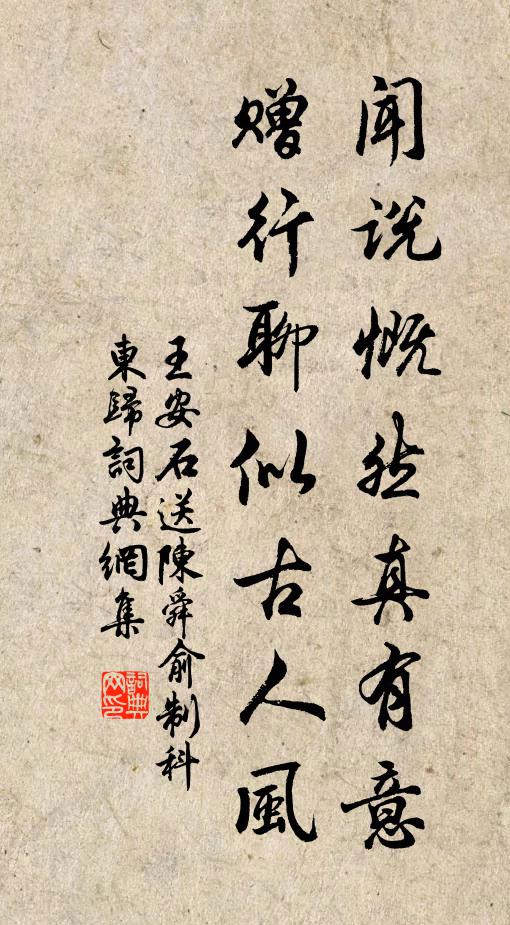 闻说慨然真有意
赠行聊似古人風
王安石送陳舜俞制科
東歸詞典網集
詞典
网印